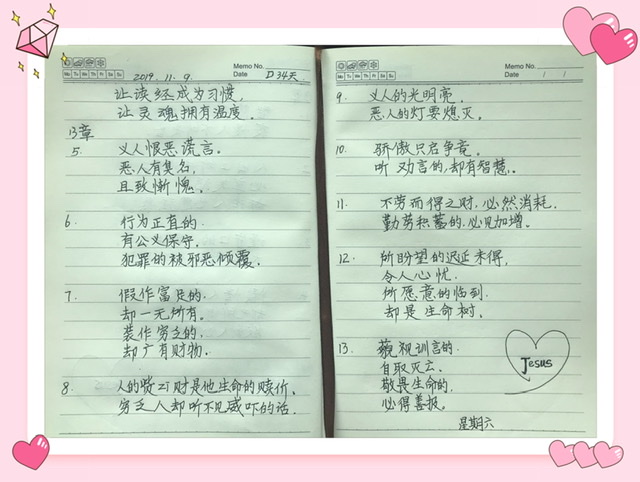 Memo No.
Mo Tu We Th Fr Sa Su
Date
2019.11.9.
D34天
让读经成为习惯,
让灵魂拥有温度.
13章
5. 义人恨恶谎言.
恶人有臭名,
且致惭愧.
6. 行为正直的.
有公义保守.
犯罪的被邪恶倾覆.
7. 假作富足的.
却一无所有。
装作穷乏的.
却广有财物.
8. 人的资财是他生命的赎价.
穷乏人却听不见威吓的话.
Memo No.
Mo Tu We Th Fr Sa Su
Date / /
9. 义人的光明亮.
恶人的灯要熄灭.
10. 骄傲只启争竞.
听劝言的,却有智慧.
11. 不劳而得之财.必然消耗.
勤劳积蓄的.必见加增.
12. 所盼望的迟延未得,
令人心忧.
所愿意的临到.
却是生命树.
13. 藐视训言的.
自取灭亡.
敬畏生命的.
必得善报.
Jesus
星期六